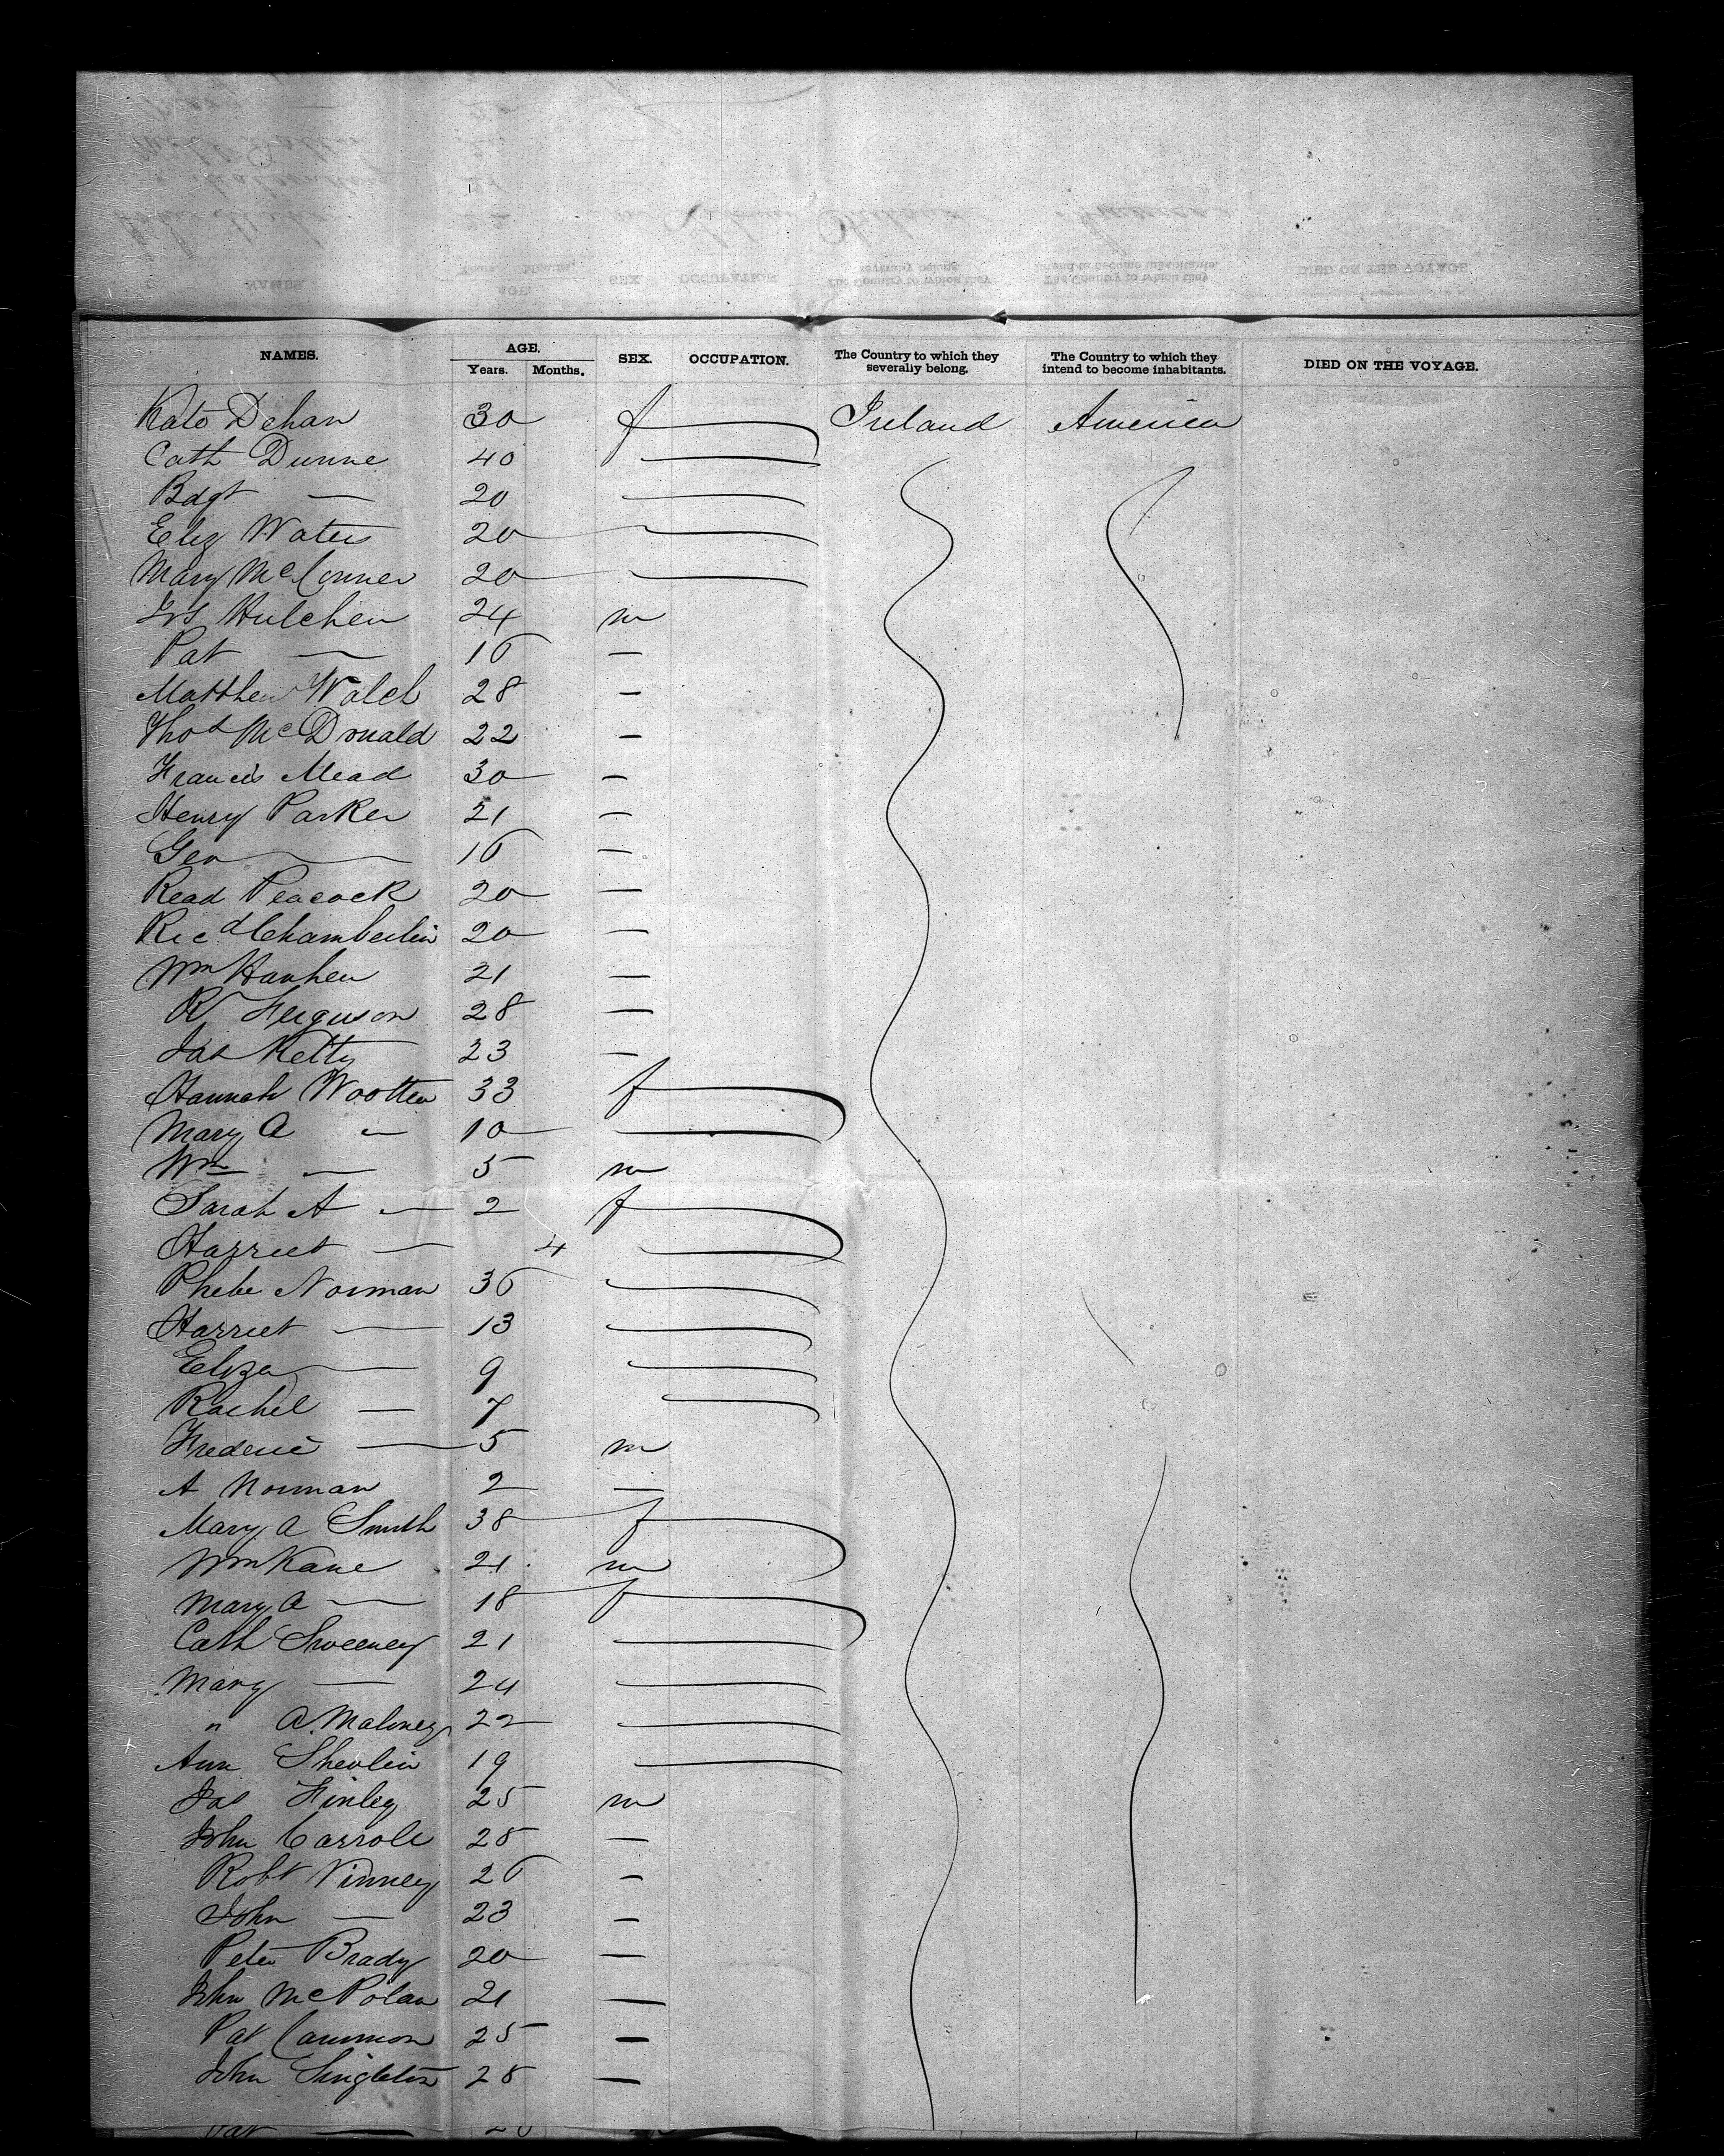 NAMES. AGE. Years. Months. SEX. OCCUPATION. The Country to which they severally belong. The Country to which they intend to become inhabitants. DIED ON THE VOYAGE.
Kate Dehan 30 f Ireland America
Cath Dunne 40
Bdgt — 20
Eliz Waters 20
Mary McConner 20
Hulchen 24 m
Pat — 16 —
Matthew Walch 28 —
Thos McDonald 22 —
Francis Mead 30 —
Henry Parker 21 —
Geo — 16 —
Read Peacock 20 —
Ricd Chamberlin 20 —
Wm Hanhen 21 —
R Ferguson 28 —
Jas Ketty 23 —
Hannah Wootten 33 f
Mary A — 10
Wm — 5 m
Sarah A — 2 f
Harriet — 4
Phebe Norman 36
Harriet — 13
Eliza — 9
Rachel — 7
Frederic — 5 m
A Norman 2 —
Mary A Smith 38 f
Wm Kane 21 m
Mary A — 18 f
Cath Sweeney 21
Mary — 24
" A. Maloney 22
Ann Shevlin 19
Jas Finley 25 m
John Carroll 28 —
Robt Vinney 26 —
John — 23 —
Peter Brady 20 —
John McPolan 21 —
Pat Cammon 25 —
John Singleton 28 —
Pat —